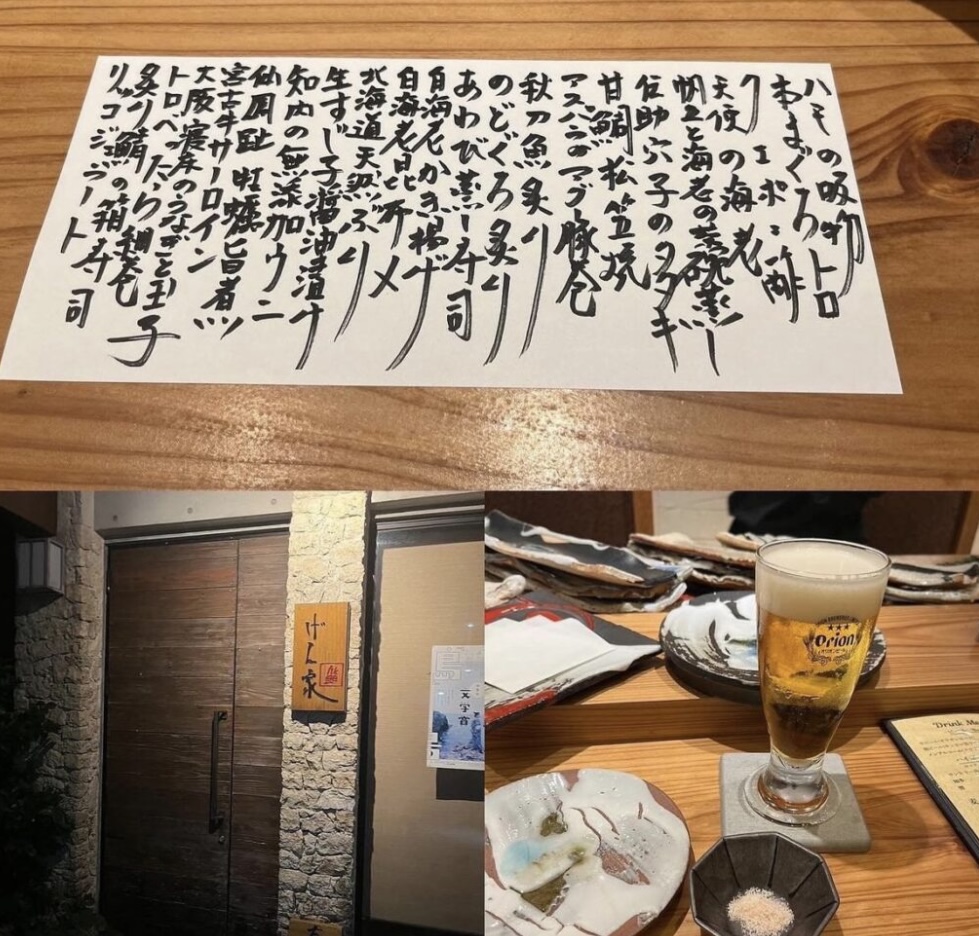 ハモの吸物
本まぐろトロ
クエポン酢
天使の海老
帆立と海老の茶碗蒸し
伝助穴子のタタキ
甘鯛松笠焼
アスパラアグー豚巻
秋刀魚炙り
のどぐろ炙り
あわび蒸し寿司
白海老かき揚げ
白海老昆布〆
北海道天然ぶり
生すじ子醤油漬け
知内の無添加ウニ
仙鳳趾牡蠣旨煮
宮古牛サーロイン
大阪寝床のうなぎと玉子
トロべったら細巻
炙り鯖の箱寿司
リッコジェラート
げん家
Orion
Drink Me